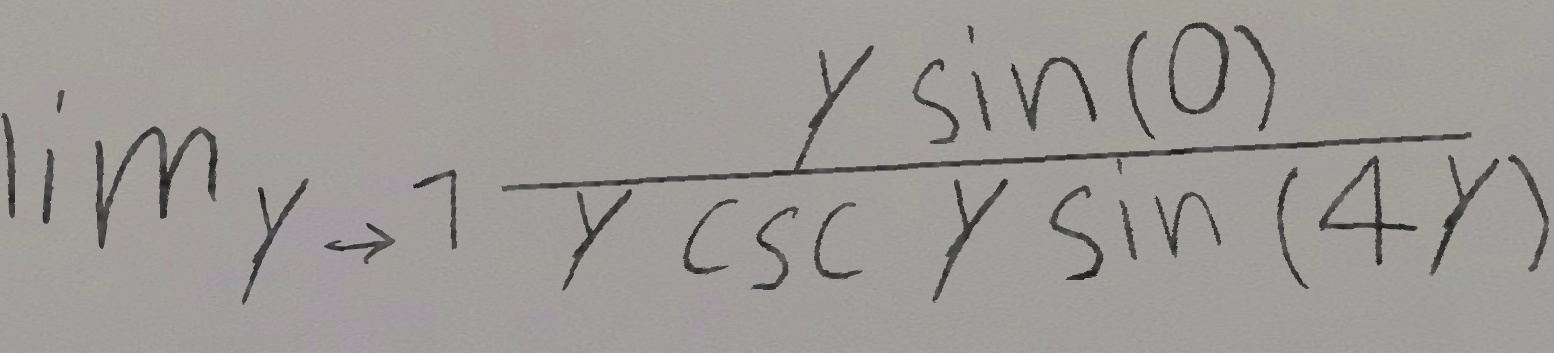 lim y→1 \frac{y sin(0)}{y csc y sin(4y)}